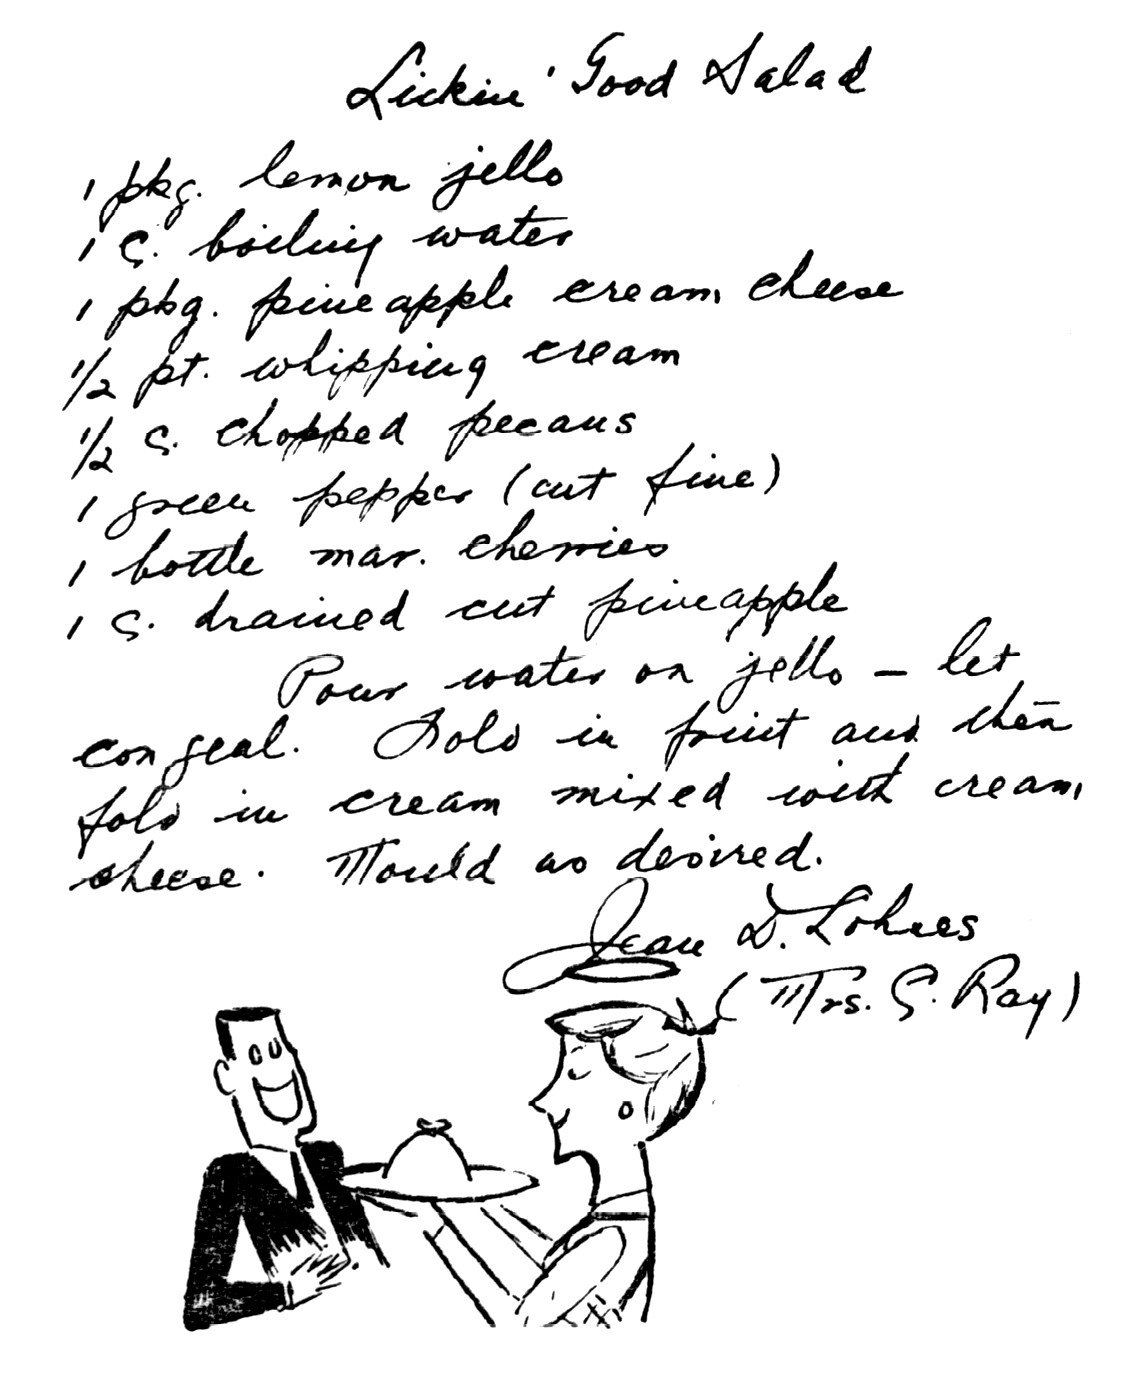 Lickin' Good Salad
1 pkg. lemon jello
1 c. boiling water
1 pkg. pineapple cream cheese
1/2 pt. whipping cream
1/2 c. chopped pecans
1 green pepper (cut fine)
1 bottle mar. cherries
1 c. drained cut pineapple
Pour water on jello — let
congeal. Fold in fruit and then
fold in cream mixed with cream
cheese. Mould as desired.
Jean D. Lohnes
(Mrs. G. Ray)